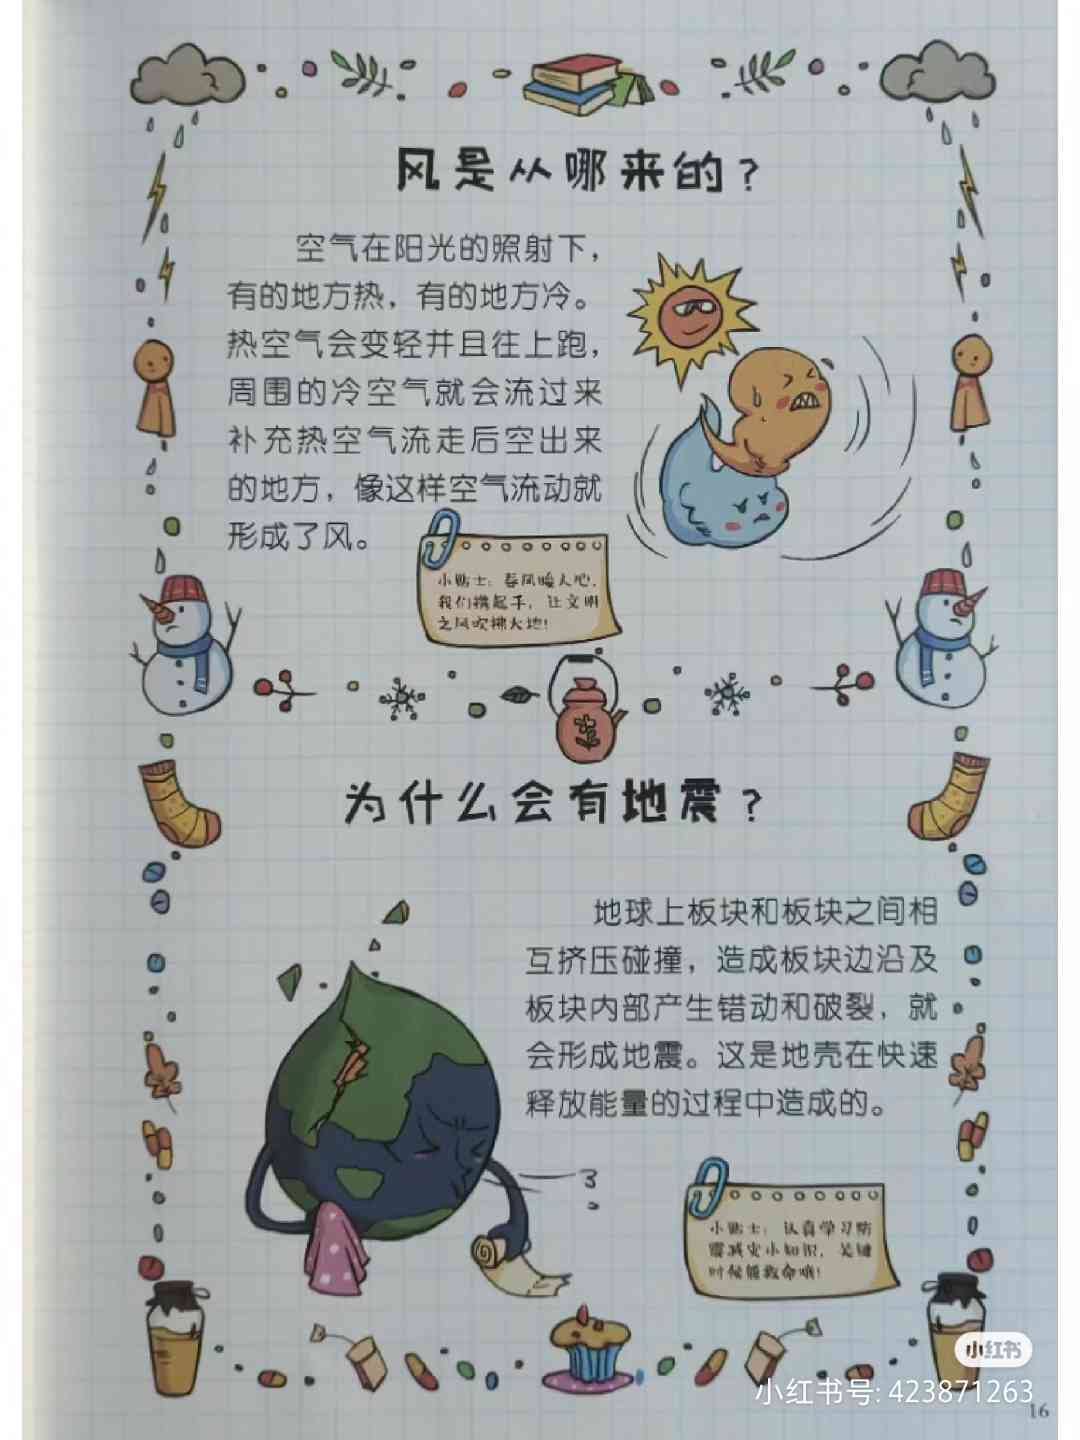 风是从哪来的？
空气在阳光的照射下，
有的地方热，有的地方冷。
热空气会变轻并且往上跑，
周围的冷空气就会流过来
补充热空气流走后空出来
的地方，像这样空气流动就
形成了风。
小贴士：春风暖人心，
我们携起手，让文明
之风吹拂大地！
为什么会有地震？
地球上板块和板块之间相
互挤压碰撞，造成板块边沿及
板块内部产生错动和破裂，就
会形成地震。这是地壳在快速
释放能量的过程中造成的。
小贴士：认真学习防
震减灾小知识，关键
时候能救命哦！
小红书
小红书号: 423871263
16